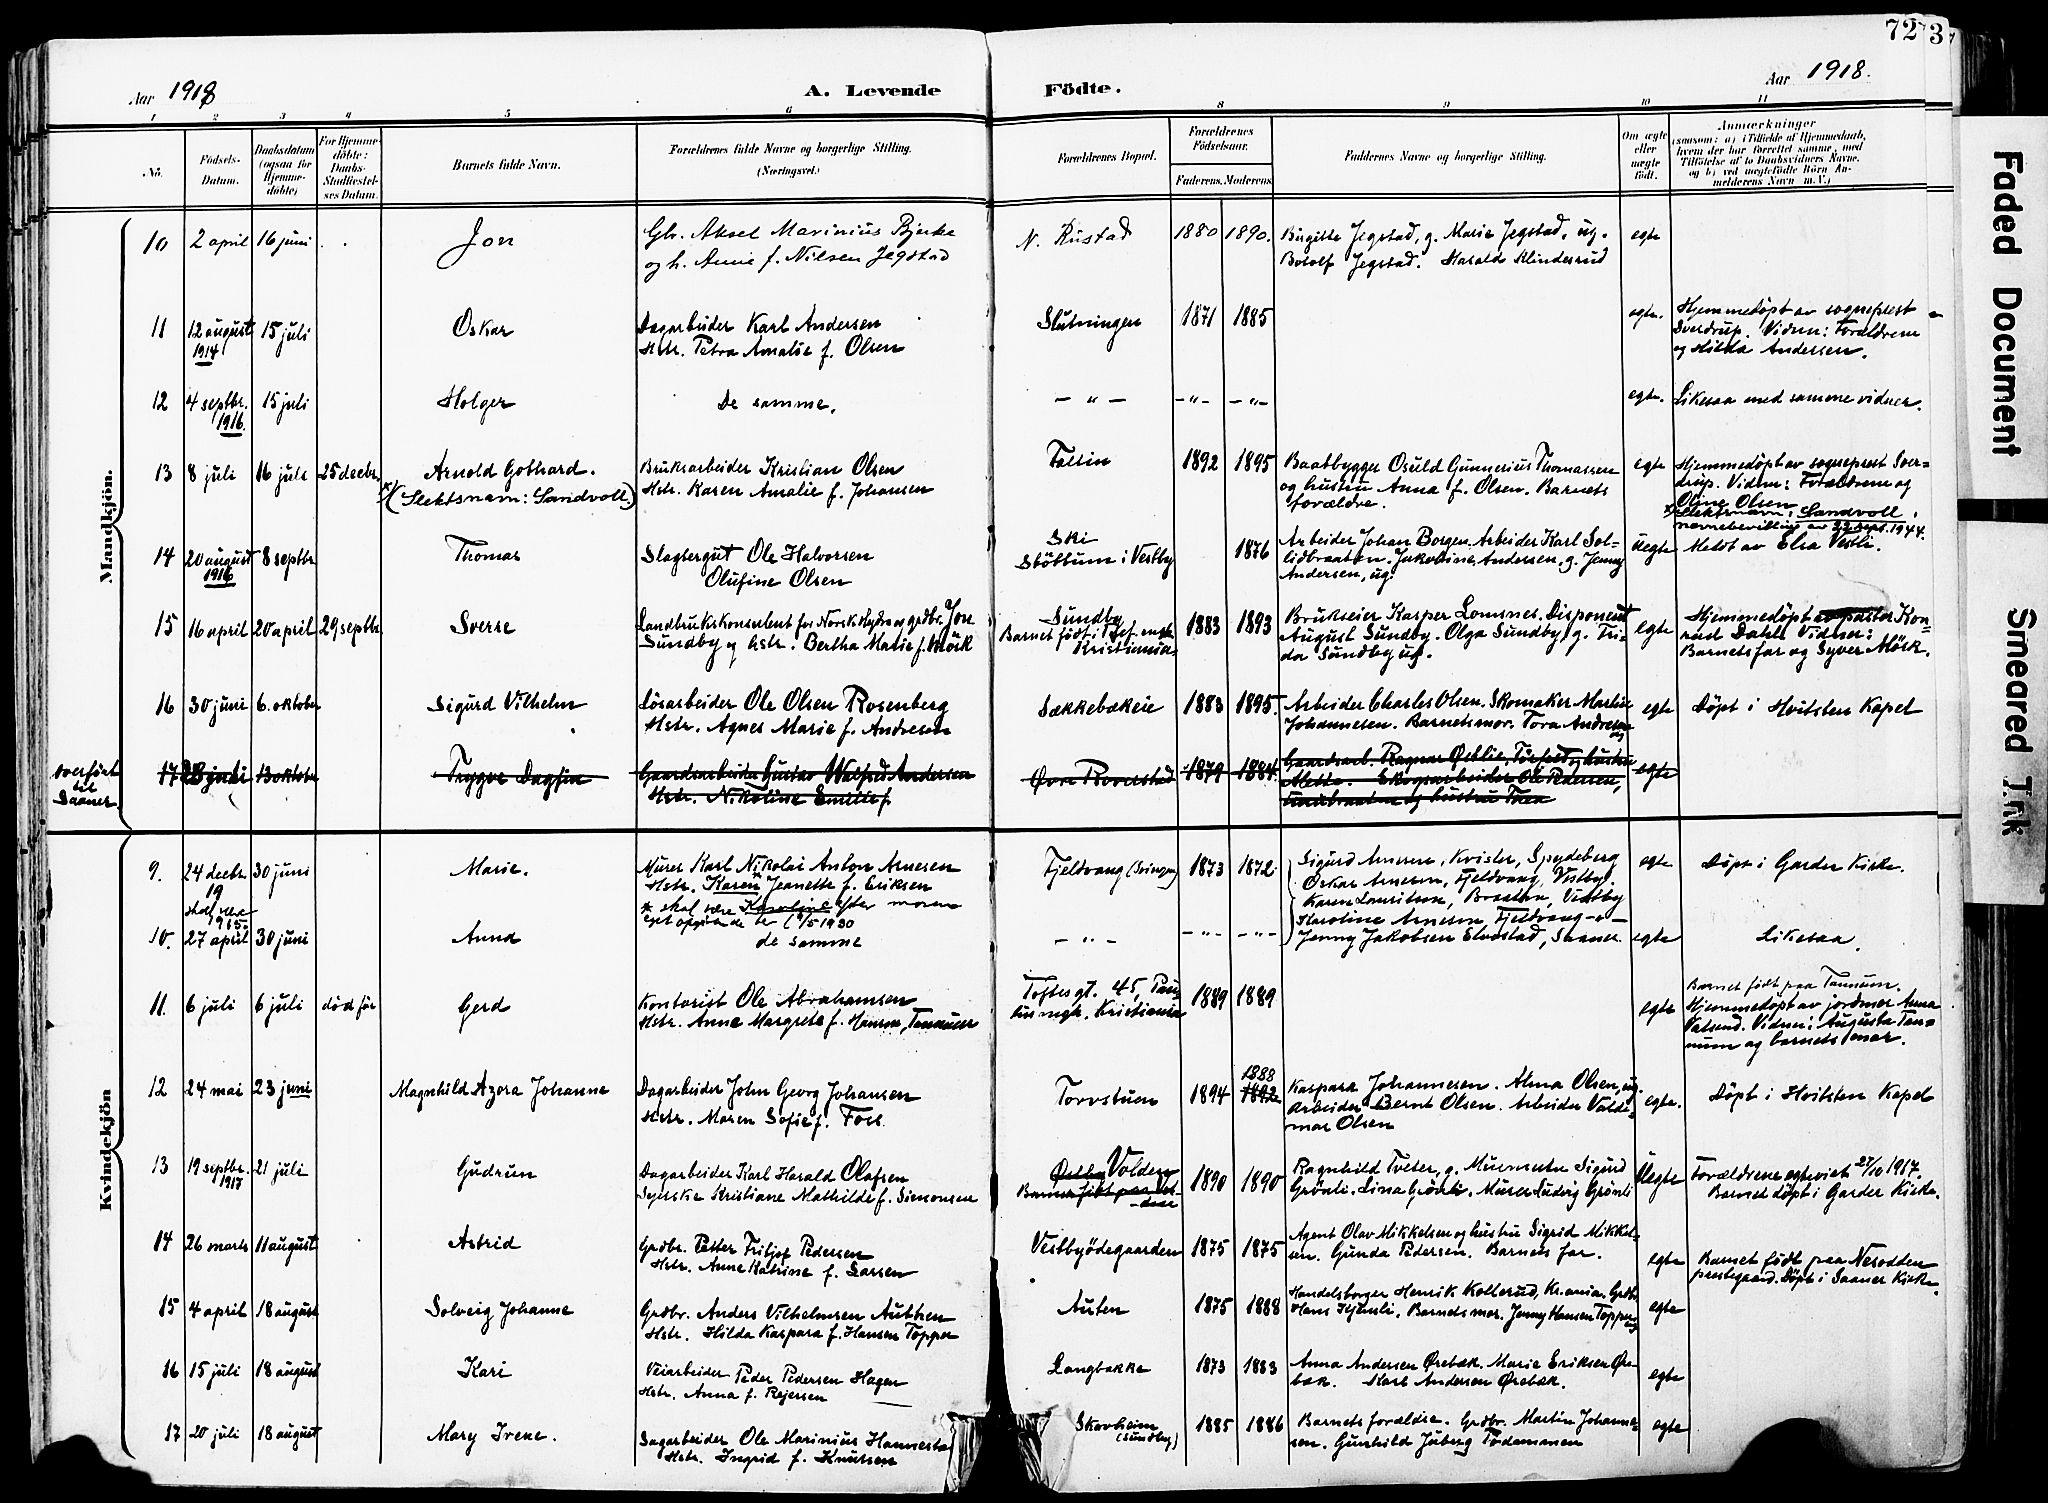 7273
Aar 1918
A. Levende Födte.
Aar 1918.
1 2 3 4 5 6 8 9 10 11
No.
Födsels-Datum.
Daabsdatum (ogsaa for Hjemmedöbte)
For Hjemmedöbte: Daabs-Stadfæstelses Datum.
Barnets fulde Navn.
Forældrenes fulde Navne og borgerlige Stilling.
(Næringsvei.)
Forældrenes Bopæl.
Forældrenes Födselsaar.
Faderens. Moderens.
Faddernes Navne og borgerlige Stilling.
Om ægte eller uægte födt.
Anmærkninger
(saasom: a) i Tilfælde af Hjemmedaab, hvem der har forrettet samme, med Tilföielse af to Daabsvidners Navne, og b) ved uægtefödte Börn Anmelderens Navn m.V.)
Mandkjön.
10 2 april 16 juni Jon
Gb. Aksel Marinius Bjerke
og h. Annie f. Nilsen Jegstad
N. Rustad 1880 1890.
Birgitte Jegstad, g. Marie Jegstad, ug.
Botolf Jegstad. Harald Klinderud
egte
11 12 august 1914 15 juli Oskar
Dagarbeider Karl Andersen
Hstr. Petra Amalie f. Olsen
Slutningen 1871 1885 egte.
Hjemmedöpt av sogneprest
Sverdrup. Vidner: Forældrene
og Hilda Andersen.
12 4 septbr. 1916. 15 juli Holger
De samme.
— " — —"— —"— egte. Likesaa med samme vidner.
13 8 juli 16 juli 25 decbr. Arnold Gothard.
x/(Slektsnavn: Sandvoll.)
Bruksarbeider Kristian Olsen
Hstr. Karen Amalie f. Johansen
1892 1895
Baatbygger Osuld Gunnerius Thomassen
og hustru Anna f. Olsen. Barnets
forældre.
egte
Hjemmedöpt av sogneprest Sver=
drup. Vidner: Forældrene og
Oline Olsen
x Slektsnavn: Sandvoll,
navnebevilling av 22 sept. 1944.
14 20 august 1916 8 septbr. Thomas
Slagtergut Ole Halvorsen
Olufine Olsen
Ski
Stöttum i Vestby 1876
Arbeider Johan Borgen. Arbeider Karl Sol=
lidbraaten. Jakobine Andersen, g. Jenny
Andersen, ug.
uegte Meldt av Elsa Vestli.
15 16 april 20 april 29 septbr. Sverre
Landbrukskonsulent for Norsk Hydro og grdbr. Jon
Sundby og hstr. Bertha Marie f. Mörk
Sundby
Barnet födt i
Kristiania 1883 1893
Brukseier Kasper Lomsnes. Disponent
August Sundby. Olga Sundby, g. Fri=
da Sundby ug.
egte
Hjemmedöpt av pastor Kon=
rad Dahl. Vidner:
Barnets far og Syver Mörk.
16 30 juni 6. oktober Sigurd Vilhelm
Lösarbeider Ole Olsen Rosenberg
Hstr. Agnes Marie f. Andresen
Sækkebækeie 1883 1895.
Arbeider Charles Olsen. Skomaker Martin
Johannesen. Barnets mor. Tora Andresen
ug
egte Döpt i Hvitsten Kapel
overfört
til
Saaner.
17 28 juli 13 oktober Trygve Dagfin
Gaardsarbeider Gustav Walfred Andersen
Hstr. Nikoline Emilie f.
Øvre Roverstad 1879 1884.
Gaardsarb. Ragnar Østlie, Torfast og hustru
Alette. Skogsarbeider Ole Pedersen,
og hustru Thea
egte
Kvindekjön
9. 24 decbr. 19 skal være 1915. 30 juni Marie.
Murer Karl Nikolai Anton Arnesen
Hstr. Karen* Jeanette f. Eriksen
* skal være Karoline efter moren
eget opgivende 1930
Fjeldvang 1873 1872.
Sigurd Arnesen, Kvister, Spydeberg
Oskar Arnesen, Fjeldvang, Vestby.
Karen Lauritsen, Braaten, Vestby
Karoline Arnesen Fjeldvang -"-
Jenny Jakobsen Elvestad, Saaner.
egte Döpt i Garder Kirke.
10. 27 april 30 juni Anna
de samme
— " — —"— —"— egte Likesaa.
11. 6 juli 6 juli död för Gerd
Kontorist Ole Abrahamsen
Hstr. Anne Margrete f. Hansen, Tannum
Toftesgt. 45, Pau=
lusmgh. Kristiania 1889 1889 egte
Barnet födt paa Tannum.
Hjemmedöpt av jordmor Anna
Vatsend. Vidner: Augusta Tan=
num og barnets mor.
12 24 mai 23 juni Magnhild Azora Johanne
Dagarbeider John Georg Johansen
Hstr. Maren Sofie f. Foss.
Torvstuen 1894 1888 1892
Kaspara Johannesen. Alma Olsen, ug.
Arbeider Bernt Olsen. Arbeider Valde=
mar Olsen
egte. Döpt i Hvitsten Kapel
13 19 septbr. 1917 21 juli Gudrun
Dagarbeider Karl Harald Olafsen
Syerske Kristiane Mathilde f. Simonsen
Østby Volden
Barnet födt paa Vol-
dene 1890 1890
Ragnhild Tveter, g. Murmester Sigurd
Grönli. Lina Grönli. Murer Ludvig Grönli
Uegte
Forældrene egteviet 27/10 1917.
Barnet döpt i Garder Kirke.
14 26 marts 11 august Astrid
Grdbr. Petter Fritjof Pedersen
Hstr. Anne Katrine f. Larsen
Vestbyödegaarden 1875 1875
Agent Olav Mikkelsen og hustru Sigrid Mikkel=
sen. Gunda Pedersen. Barnets far.
egte
Barnet födt paa Nesodden
prestegaard. Döpt i Saaner Kirke.
15 4 april 18 august Solveig Johanne
Grdbr. Anders Vilhelmsen Authen
Hstr. Hilda Kaspara f. Hansen Topper
Auten 1875 1888
Handelsborger Henrik Kollerud, Kr.ania. Grdbr.
Hans Hjemli. Barnets mor. Jenny Hansen Topper
ug
egte
16 15 juli 18 august Kari
Veiarbeider Peder Pedersen Hagen
Hstr. Anna f. Rejersen
Langbakke 1873 1883
Anna Andersen Ørebæk. Marie Eriksen Øre=
bæk. Karl Andersen Ørebæk.
egte
17 20 juli 18 august Mary Irene.
Dagarbeider Ole Marinius Hannestad
Hstr. Ingrid f. Knutsen
Skovheim
(Sundby) 1885 1886
Barnets forældre. Grdbr. Martin Johanne=
sen. Gunhild Juberg Fodemmen
egte
Faded Document
Smeared Ink